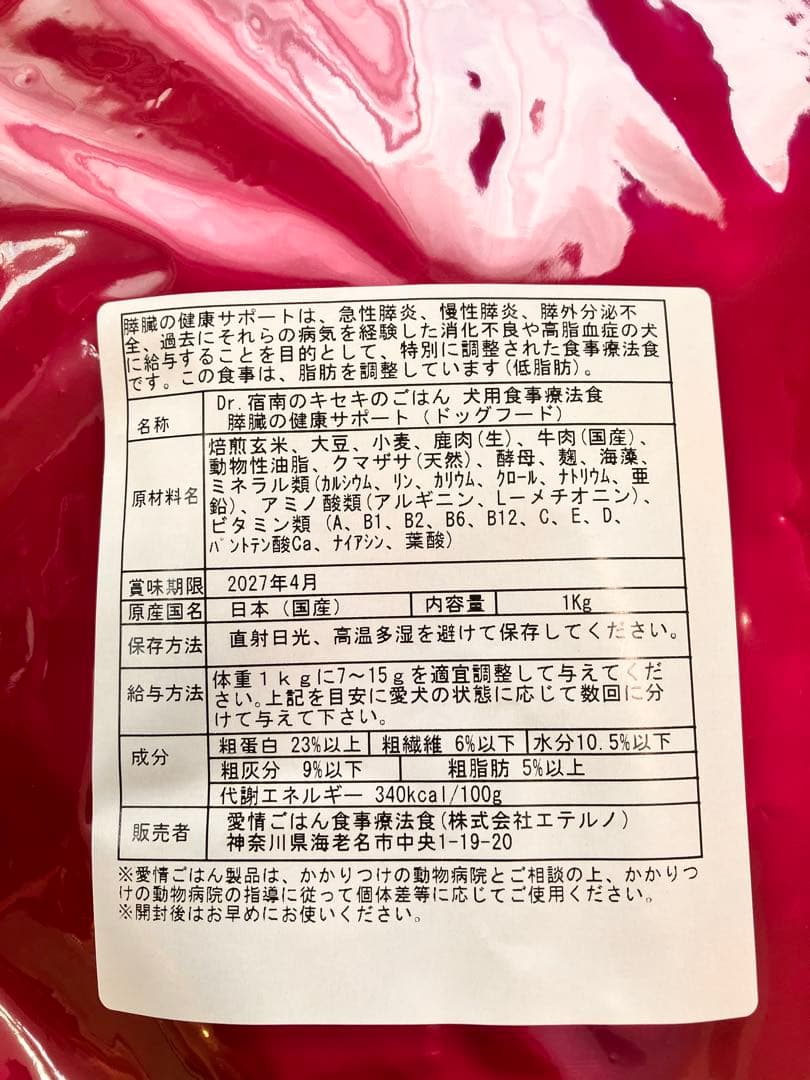 膵臓の健康サポートは、急性膵炎、慢性膵炎、膵外分泌不
全、過去にそれらの病気を経験した消化不良や高脂血症の犬
に給与することを目的として、特別に調整された食事療法食
です。この食事は、脂肪を調整しています(低脂肪)。
名称
Dr.宿南のキセキのごはん 犬用食事療法食
膵臓の健康サポート（ドッグフード）
原材料名
焙煎玄米、大豆、小麦、鹿肉(生)、牛肉(国産)、
動物性油脂、クマザサ(天然)、酵母、麹、海藻、
ミネラル類(ｶﾙｼｳﾑ、リン、ｶﾘｳﾑ、ｸﾛｰﾙ、ﾅﾄﾘｳﾑ、亜
鉛)、アミノ酸類(アルギニン、Lーメチオニン)、
ビタミン類（A、B1、B2、B6、B12、C、E、D、
ﾊﾟﾝﾄテン酸Ca、ﾅｲｱｼﾝ、葉酸)
賞味期限 2027年4月
原産国名 日本（国産） 内容量 1Kg
保存方法 直射日光、高温多湿を避けて保存してください。
給与方法
体重１ｋｇに7〜15ｇを適宜調整して与えてくだ
さい。上記を目安に愛犬の状態に応じて数回に分
けて与えて下さい。
成分
粗蛋白 23%以上 粗繊維 6%以下 水分10.5%以下
粗灰分 9%以下 粗脂肪 5%以上
代謝エネルギー 340kcal/100g
販売者
愛情ごはん食事療法食(株式会社エテルノ)
神奈川県海老名市中央1-19-20
※愛情ごはん製品は、かかりつけの動物病院とご相談の上、かかりつ
けの動物病院の指導に従って個体差等に応じてご使用ください。
※開封後はお早めにお使いください。